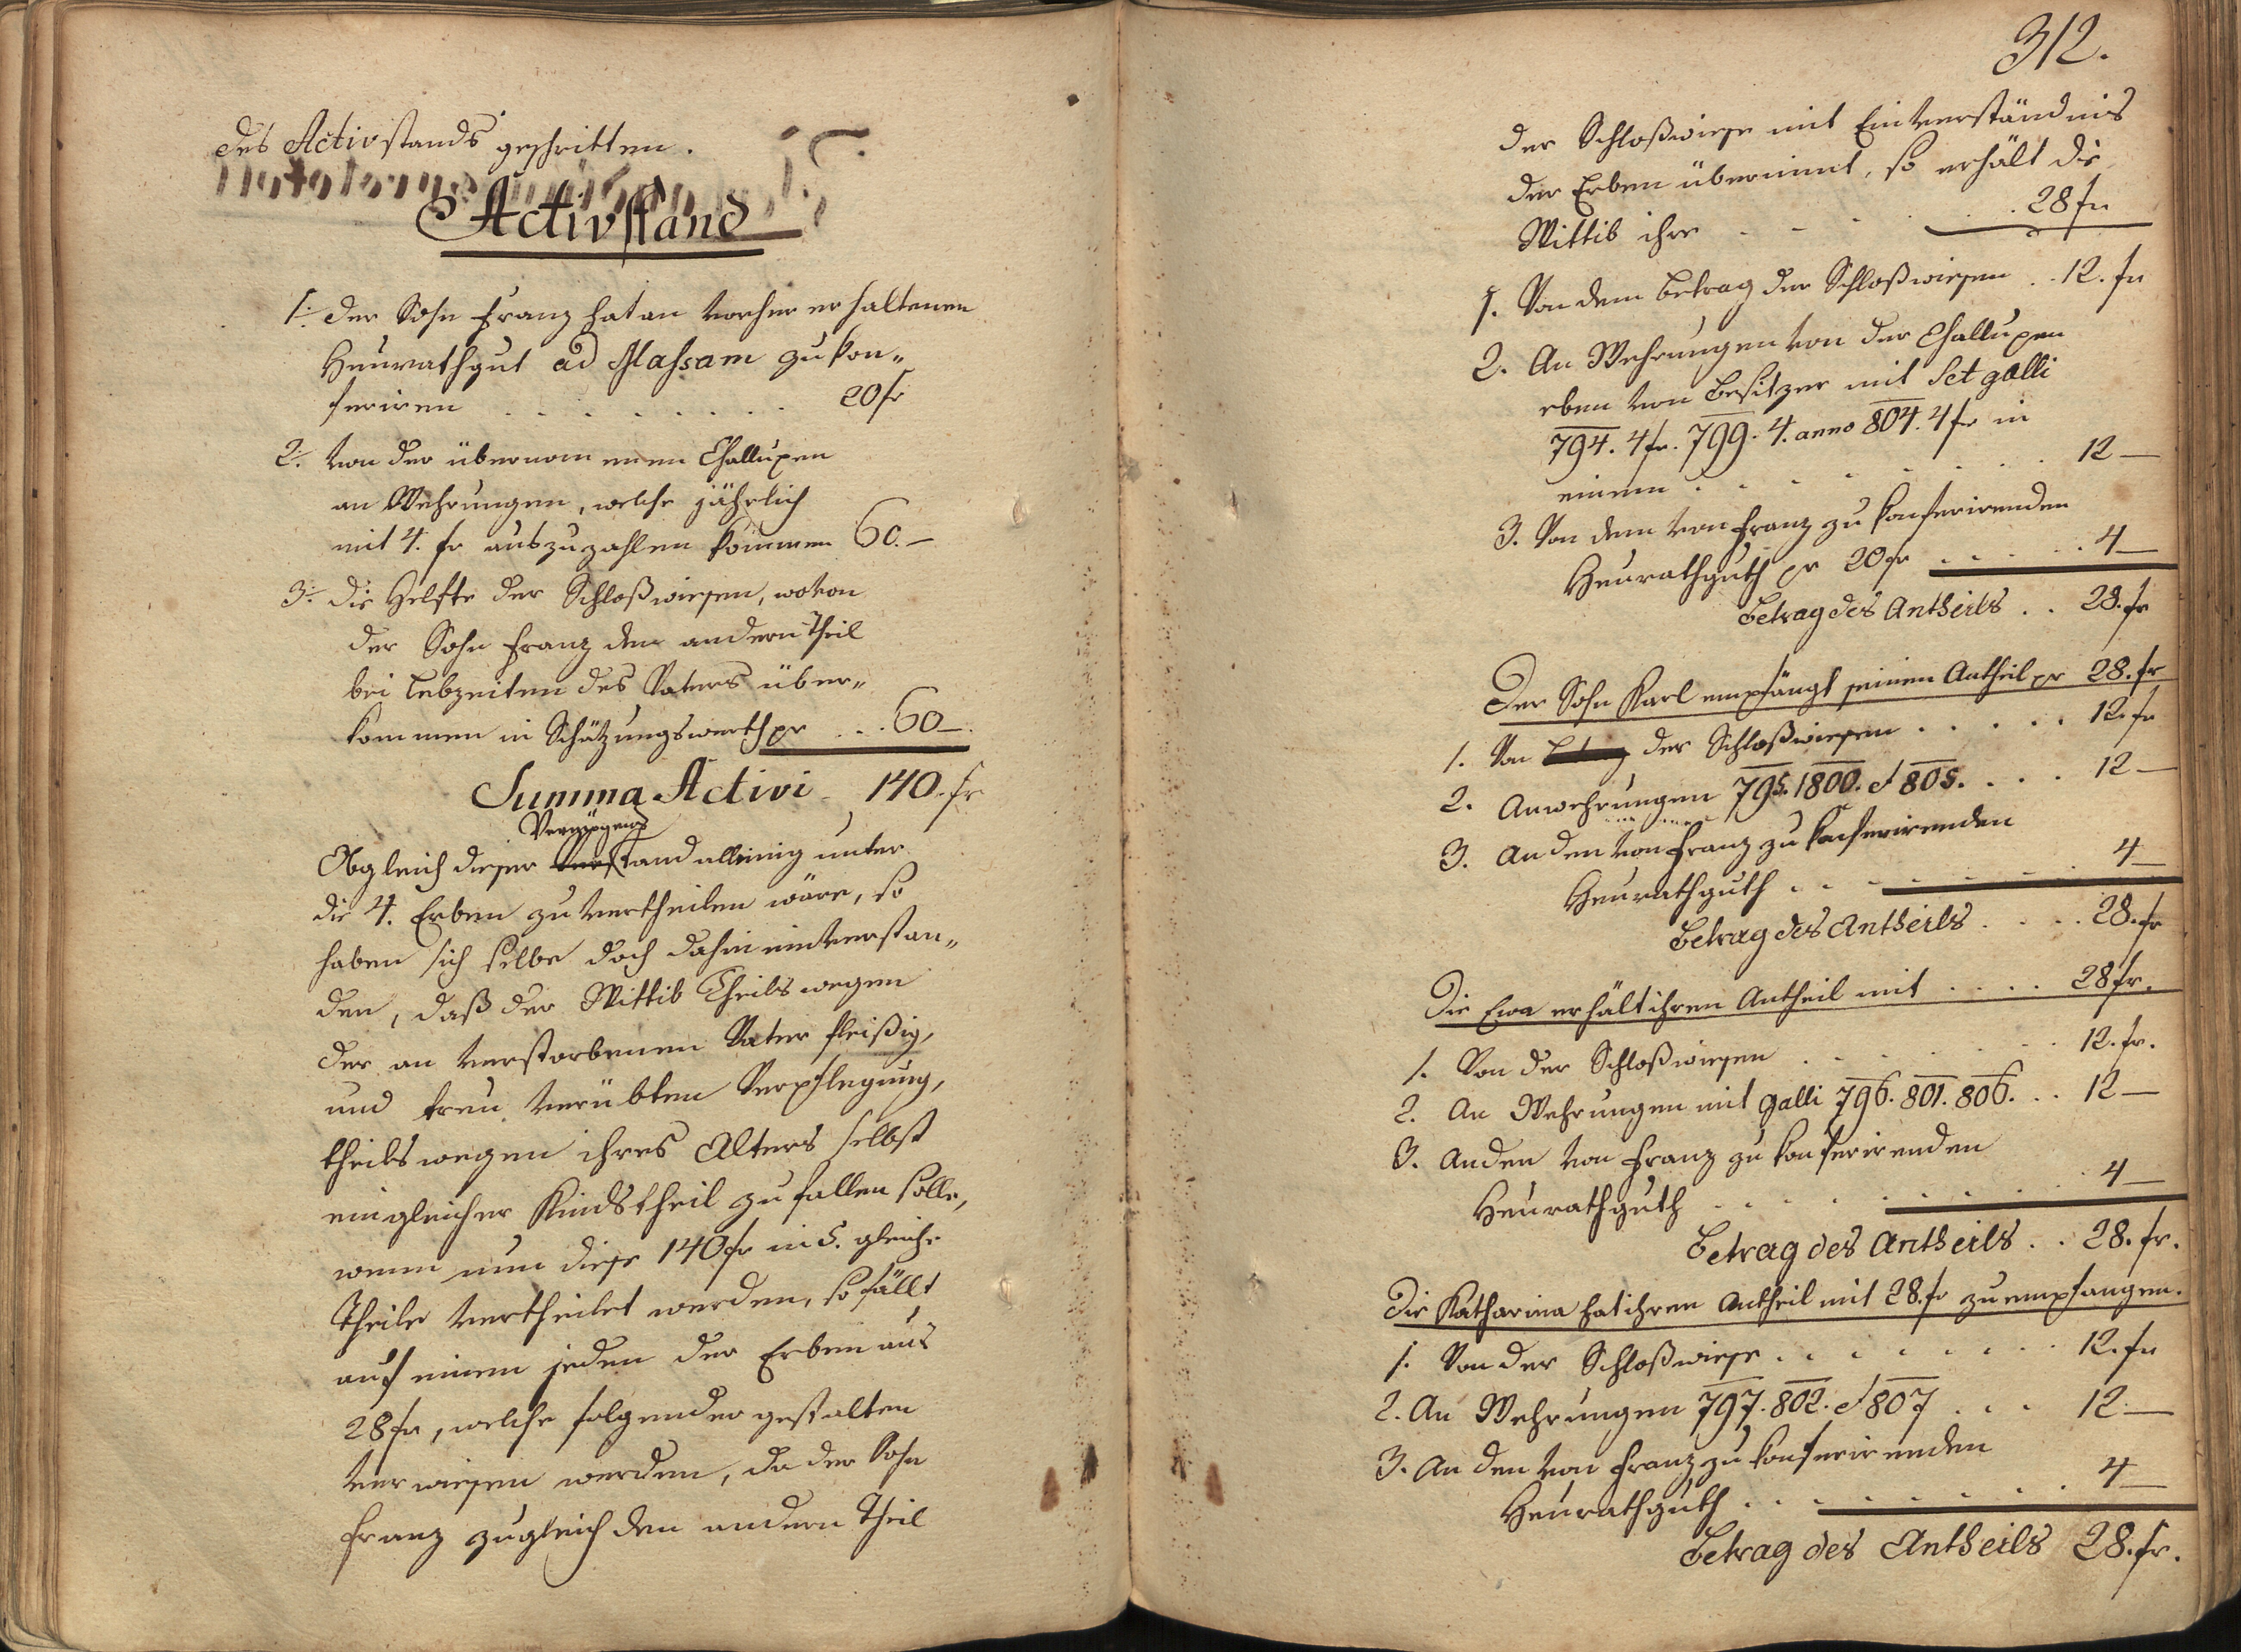 des Activstands geschritten.
Activstand
1. der Sohn Franz hat an vorher erhaltenen
Heurathgut ad Massam zu kon„
feriren . . . . . . . . 20 fr
2. von der übernommenen Challupen
an Wehrungen, welche jährlich
mit 4. fr auszuzahlen kommen 60.—
3. die Helfte der Schloßwiesen, wovon
der Sohn Franz den andern Theil
bei Lebzeiten des Vaters über„
kommen in Schätzungswerth pr . . . 60—.
Summa Activi - 140. fr
Vermögens
Obgleich dieser stand alleinig unter
die 4. Erben zu vertheilen wäre, so
haben sich selbe doch dahin einverstan„
den, daß der Wittib Theils wegen
der an verstorbenen Vater fleißig,
und treu verübten Verpflegung,
theils wegen ihres Alters selbst
ein gleicher Kindstheil zufallen solle,
wenn nun diese 140 fr in 5. gleiche
Theile vertheilet werden, so fällt
auf einen jeden der Erben aus
28 fr, welche folgender gestalten
verwiesen werden, da der Sohn
Franz zugleich den andern Theil
312.
der Schloßwiese mit Einverständnis
der Erben übernimt, so erhält die
Wittib ihre - - - . . . 28 fr
1. Von dem Betrag der Schloßwiesen . . 12. fr
2. An Wehrungen von der Challupen
eben von Besitzer mit Set galli
794. 4 fr. 799. 4. anno 804. 4 fr in
einem . . . . . . . . 12—
3. Von dem von Franz zu konferirenden
Heurathguth pr 20 fr . . . . . 4—
Betrag des Antheils . . 28. fr
Der Sohn Karl empfängt seinen Antheil pr 28. fr
1. Von der Schloßwiesen . . . . . 12. fr
2. An wehrungen 795. 1800. et 805. . . . 12—
3. An den von Franz zu konferirenden
Heurathguth . . . . . . . 4—
Betrag des Antheils . . . . 28. fr
Die Ewa erhält ihren Antheil mit . . . . 28 fr.
1. Von der Schloßwiesen . . . . . . 12. fr.
2. An Wehrungen mit galli 796. 801. 806. . . 12—
3. An den von Franz zu konferirenden
Heurathguth . . . . . . . . 4—
Betrag des Antheils . . 28. fr.
Die Katharina hat ihren Antheil mit 28. fr zu empfangen.
1. Von der Schloßwiese . . . . . . . 12. fr
2. An Wehrungen 797. 802. et 807 . . . 12—
3. An den von Franz zu konferirenden
Heurathguth . . . . . . . . 4—
Betrag des Antheils 28. fr.